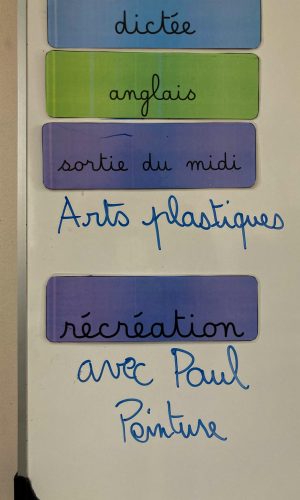 dictée
anglais
sortie du midi
Arts plastiques
récréation
avec Paul
Peinture